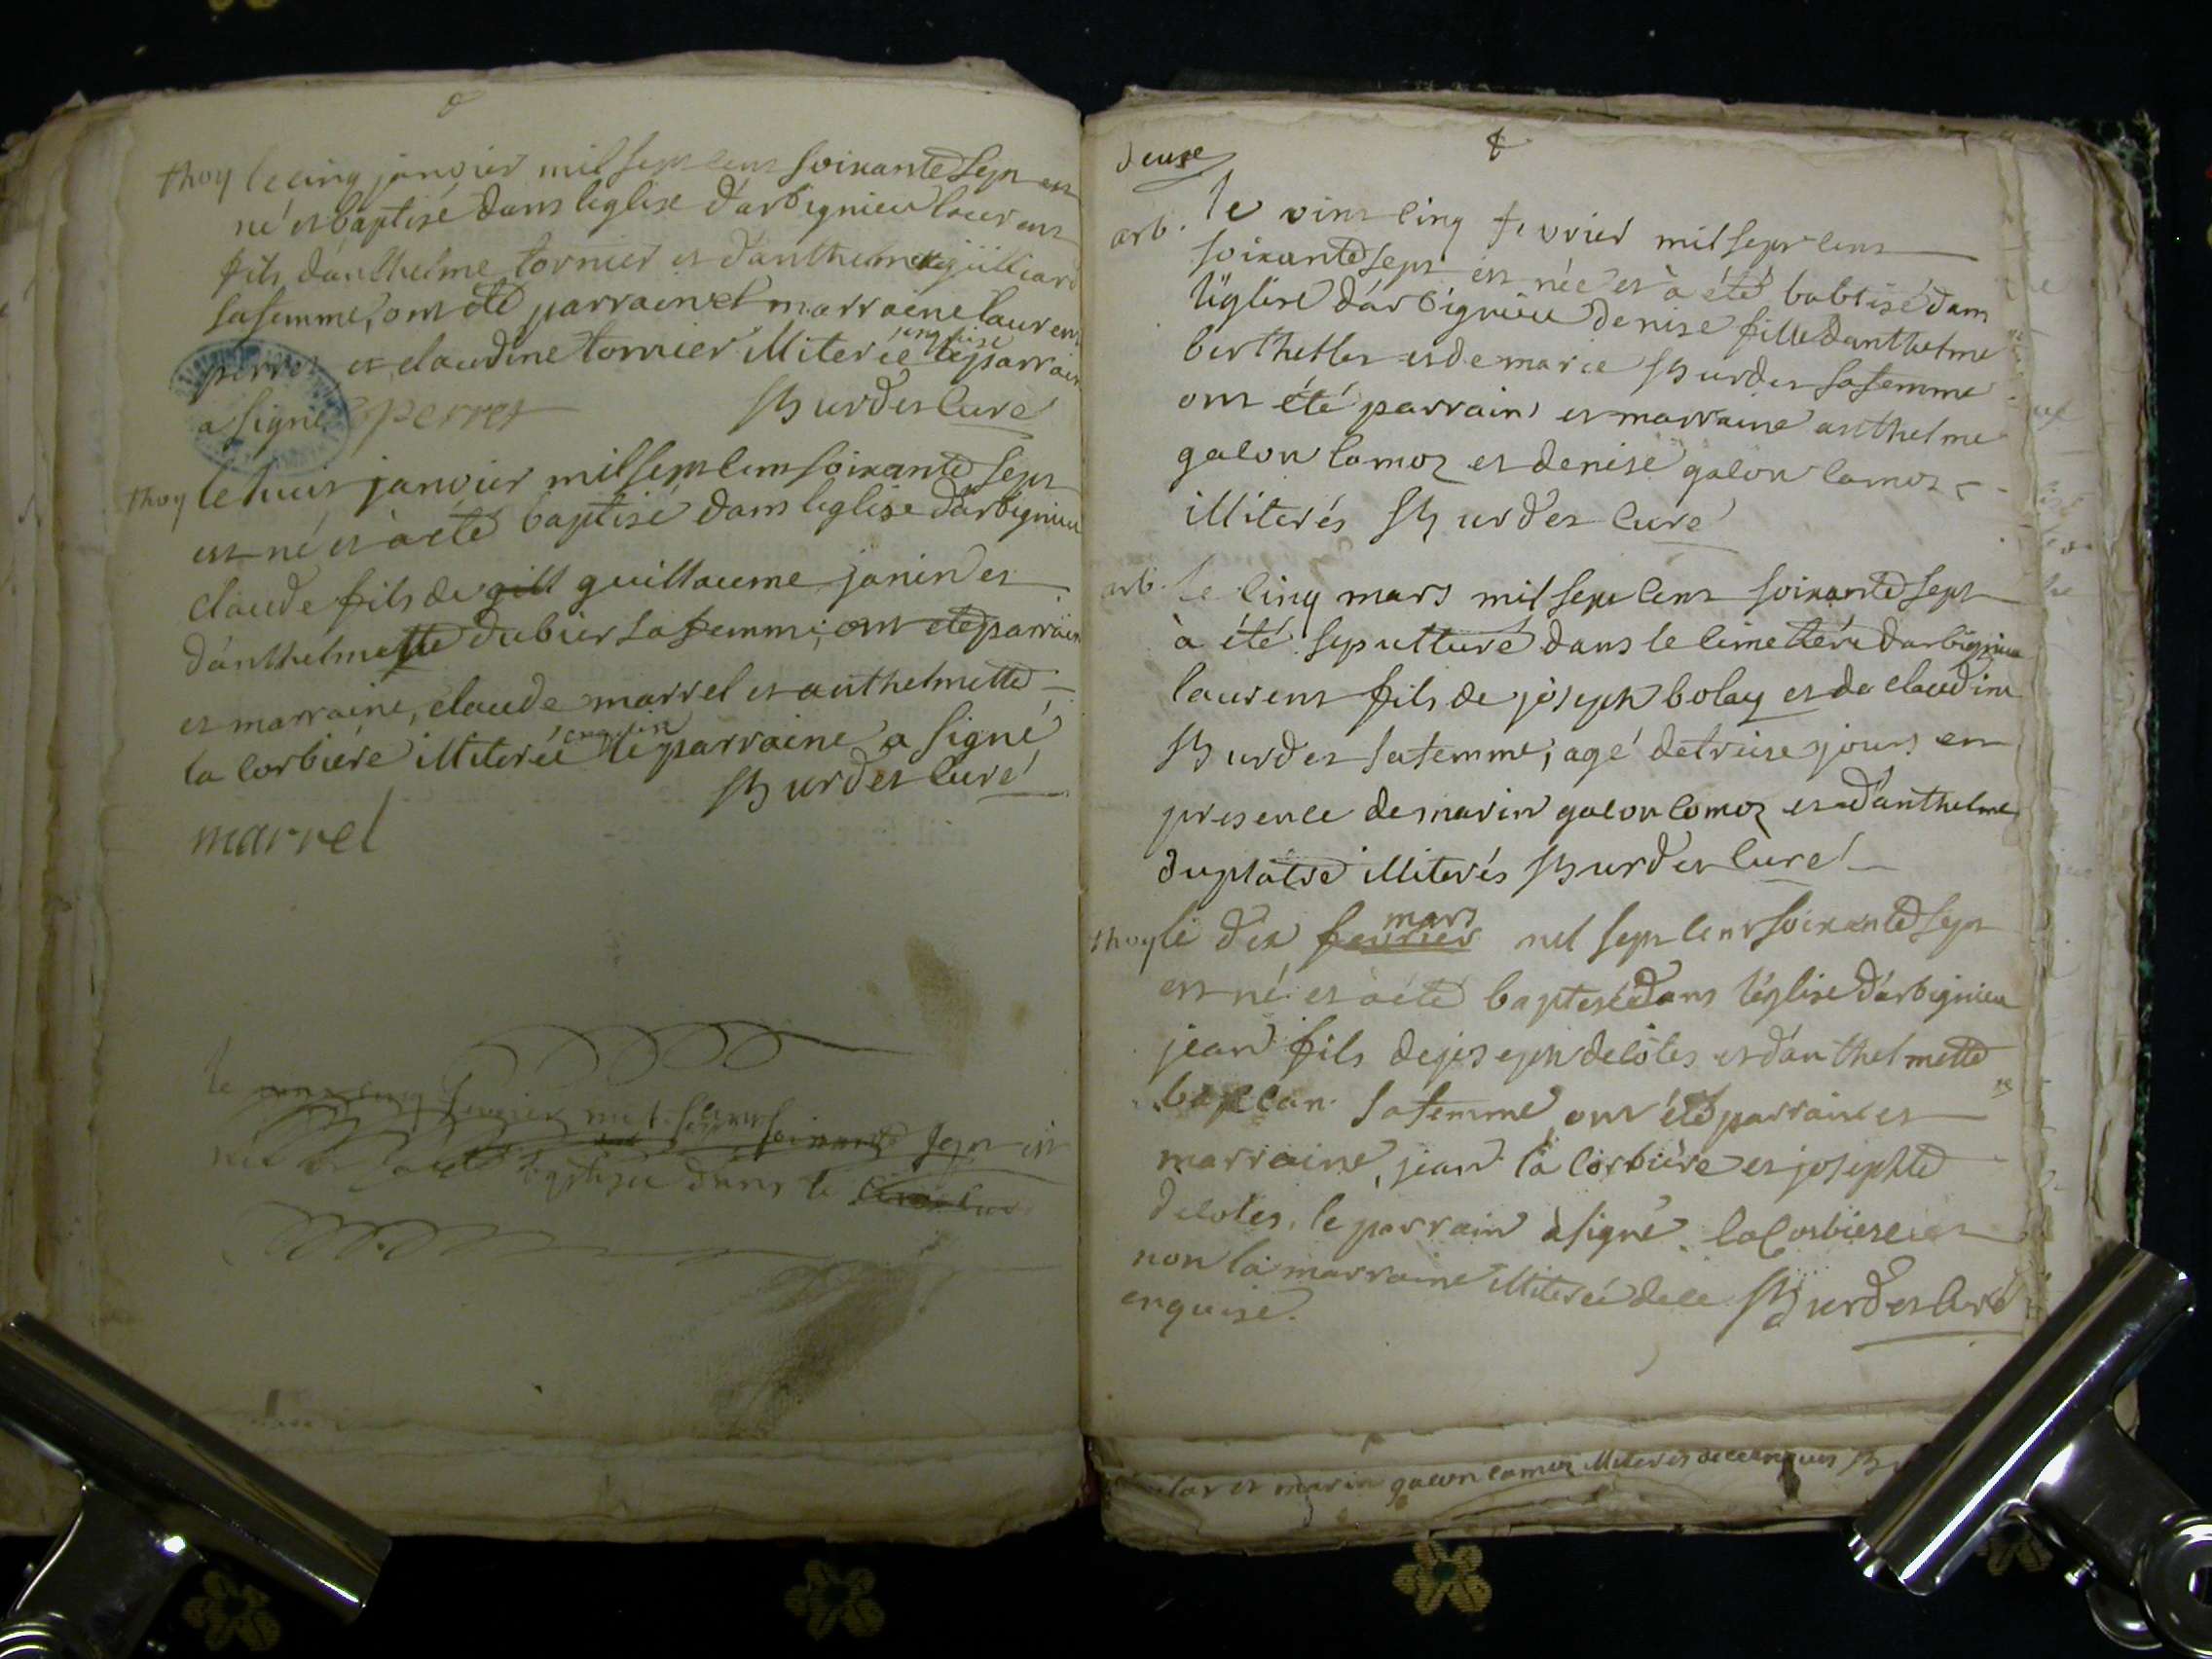 thoy le cinq janvier mil sept cens soixante sept est
né et baptisé dans leglise d'arbignieu laurent
fils d'anthelme tornier et d'anthelmette guilliard
sa femme, ont eté parrain et marraine laurent
enquise
perret et claudine tornier illiterée le parrain
a signé perret SBurdet curé
thoy le huit janvier mil sept cent soixante sept
est né et à eté baptisé dans leglise d'arbignieu
claude fils de gill guillaume janin et
d'anthelmette dubier sa femme; ont eté parrain
et marraine, claude marrel et anthelmette
enquise
la corbiére illiterée le parraine a signé
SBurdet curé
marrel
le cinq fevrier mil sept cens soixante sept est
née et a eté baptisée dans le
deuxe
arb. le vint cinq fevrier mil sept cens
soixante sept est née et à été babtisé dans
l'église d'arbignieu denise fille danthelme
berthellet et de marie SBurdet sa femme
ont été parrain et marraine anthelme
galon lamoz et denise galon lamoz
illiterés SBurdet curé
arb. le cinq mars mil sept cent soixante sept
à été sepulturé dans le cimettére darbignieu
laurent fils de joseph bolay et de claudine
SBurdet sa femme; agé de treise jours en
presence de marin galon lomoz et d'anthelme
duplatre illiterés SBurdet curé
mars
thoy le dix fevrier mil sept cent soixante sept
est né et à eté baptesé dans l'église d'arbignieu
jean fils de joseph delôtes et d'anthelmette
sa femme ont été parrain et
marraine, jean la corbière et josephte
delotes, le parrain à signé laCorbiere et
non la marraine illiterée de ce SBurdet curé
enquise.
et marin galon lamoz illiterés de ce enquis